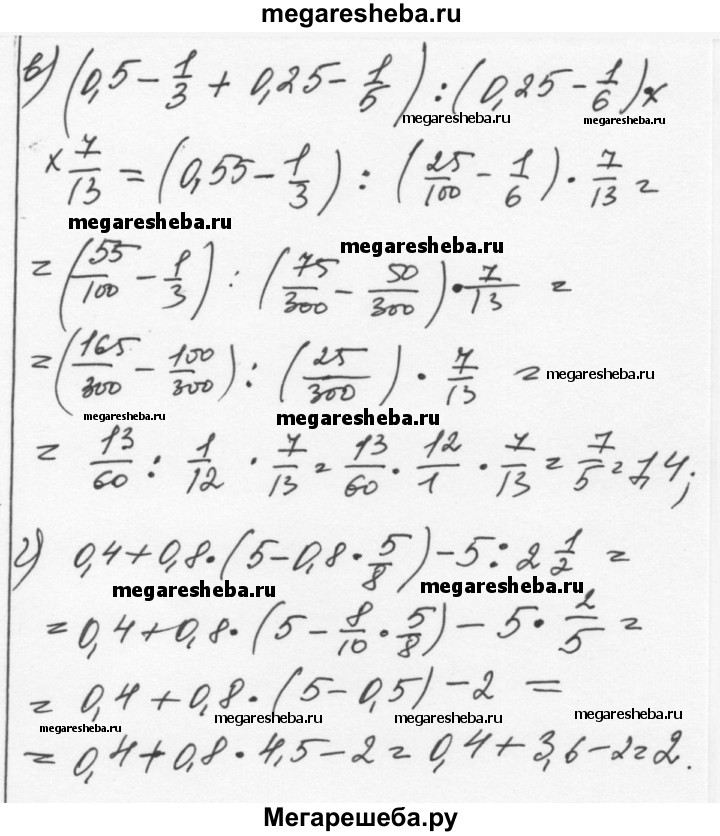 megaresheba.ru
в) (0,5 - 1/3 + 0,25 - 1/5) : (0,25 - 1/6) ×
megaresheba.ru megaresheba.ru
× 7/13 = (0,55 - 1/3) : (25/100 - 1/6) · 7/13 =
megaresheba.ru
megaresheba.ru
= (55/100 - 1/3) : (75/300 - 50/300) · 7/13 =
= (165/300 - 100/300) : (25/300) · 7/13 = megaresheba.ru
megaresheba.ru megaresheba.ru
= 13/60 : 1/12 · 7/13 = 13/60 · 12/1 · 7/13 = 7/5 = 1,4;
г) 0,4 + 0,8 · (5 - 0,8 · 5/8) - 5 : 2 1/2 =
megaresheba.ru megaresheba.ru
= 0,4 + 0,8 · (5 - 8/10 · 5/8) - 5 · 2/5 =
= 0,4 + 0,8 · (5 - 0,5) - 2 =
megaresheba.ru megaresheba.ru megaresheba.ru megaresheba.ru
= 0,4 + 0,8 · 4,5 - 2 = 0,4 + 3,6 - 2 = 2.
Мегарешеба.ру